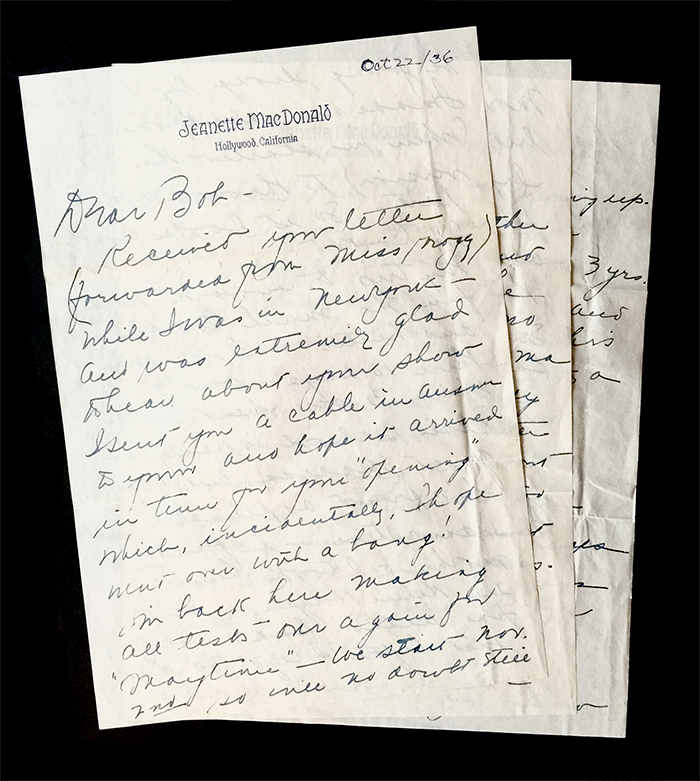 Oct 22/36
Jeanette MacDonald
Hollywood, California
Dear Bob -
Received your letter
(forwarded from Miss Mogg)
while I was in New York -
and was extremely glad
to hear about your show
I sent you a cable in answer
to yours and hope it arrived
in time for your "opening"
which, incidentally, I hope
went over with a bang!
I'm back here making
all tests over again for
"Maytime" - We start Nov.
2nd so will no doubt still
ther
no
ma
ing up.
3 yrs.
and
his
a